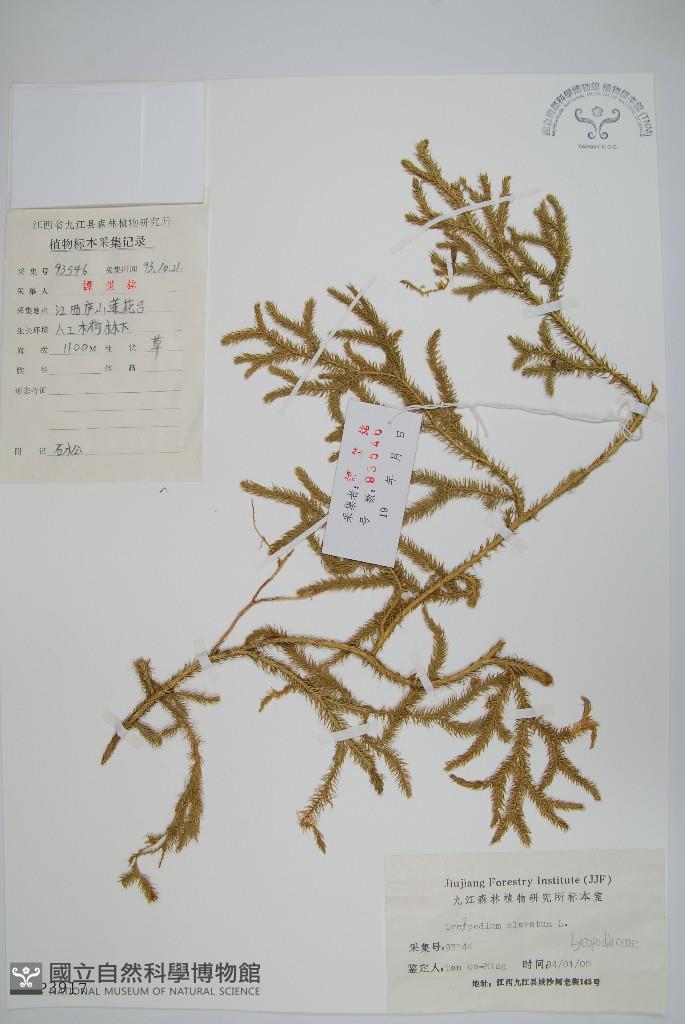 國立自然科學博物館 植物標本館 (TNM)
HERBARIUM, NATIONAL MUSEUM OF NATURAL SCIENCE
TAIWAN, R.O.C.
江西省九江县森林植物研究所
植物标本采集记录
采集号 93546 采集时间 93.10.21
采集人 譚策銘
采集地点 江西庐山莲花台
生长环境 人工木荷林下
海拔 1100M 性状 草
胸径 体高
形态特征
附记 石永公
采集者: 譚策銘
号数: 93546
19 年 月 日
Jiujiang Forestry Institute (JJF)
九江森林植物研究所标本室
Lycopodium clavatum L.
采集号: 93546 Lycopodiaceae
鉴定人: Tan Ce-Ming 时间: 94/01/08
地址: 江西九江县城沙河老街143号
國立自然科學博物館
NATIONAL MUSEUM OF NATURAL SCIENCE